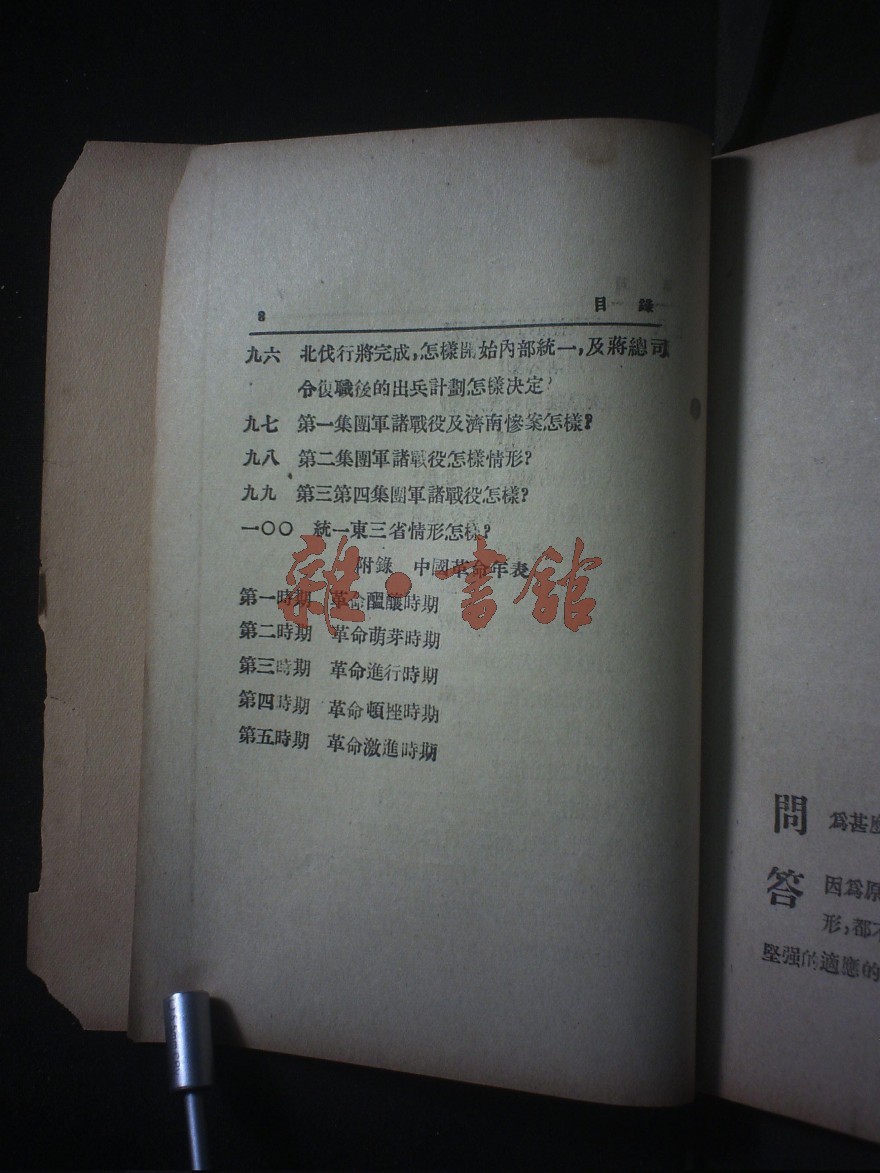 8 目錄
九六 北伐行將完成,怎樣開始內部統一,及蔣總司
令復職後的出兵計劃怎樣決定?
九七 第一集團軍諸戰役及濟南慘案怎樣?
九八 第二集團軍諸戰役怎樣情形?
九九 第三第四集團軍諸戰役怎樣?
一〇〇 統一東三省情形怎樣?
附錄 中國革命年表
第一時期 革命醞釀時期
第二時期 革命萌芽時期
第三時期 革命進行時期
第四時期 革命頓挫時期
第五時期 革命激進時期
雜·書館
問 爲甚
答 因爲原
形,都
堅强的適應的